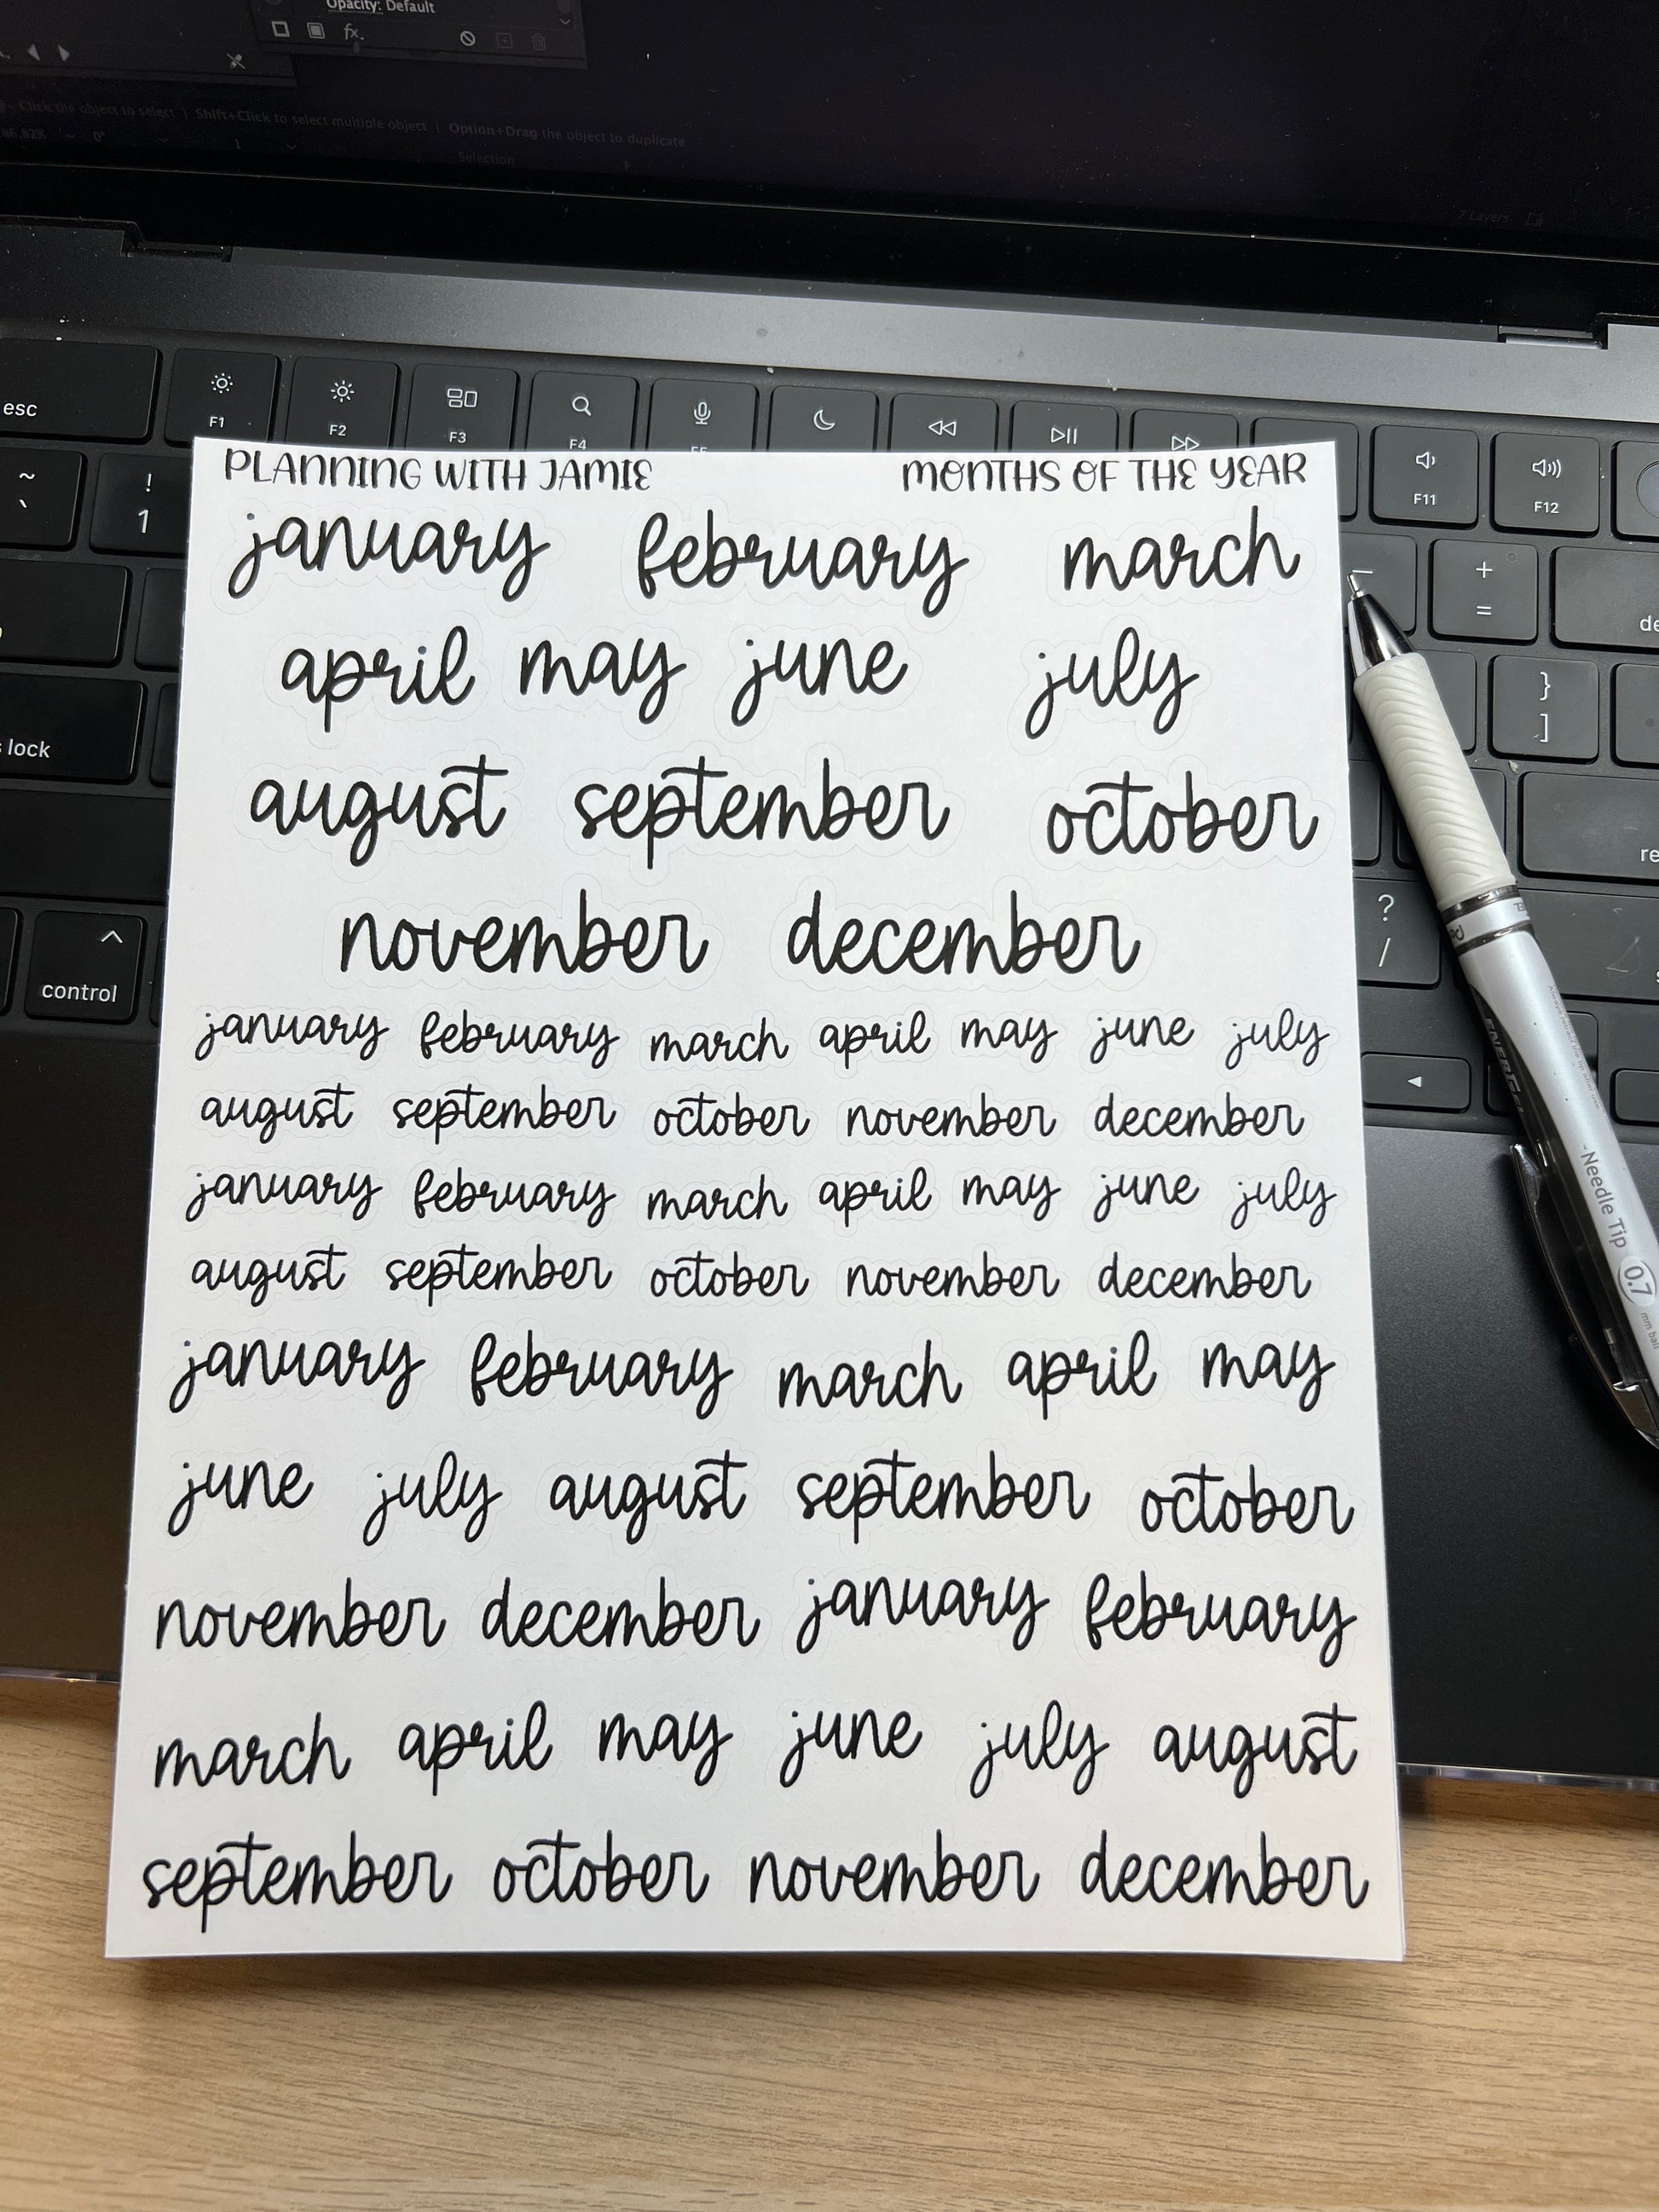 Opacity: Default
fx.
Click the object to select | Shift+Click to select multiple object | Option+Drag the object to duplicate
46.82% 0° 1
Selection
7 Layers
esc F1 F2 F3 F4 F5
F11 F12
~ ` ! 1
+ =
} ]
? /
control
lock
PLANNING WITH JAMIE MONTHS OF THE YEAR
january february march
april may june july
august september october
november december
january february march april may june july
august september october november december
january february march april may june july
august september october november december
january february march april may
june july august september october
november december january february
march april may june july august
september october november december
-Needle Tip 0.7 mm ball